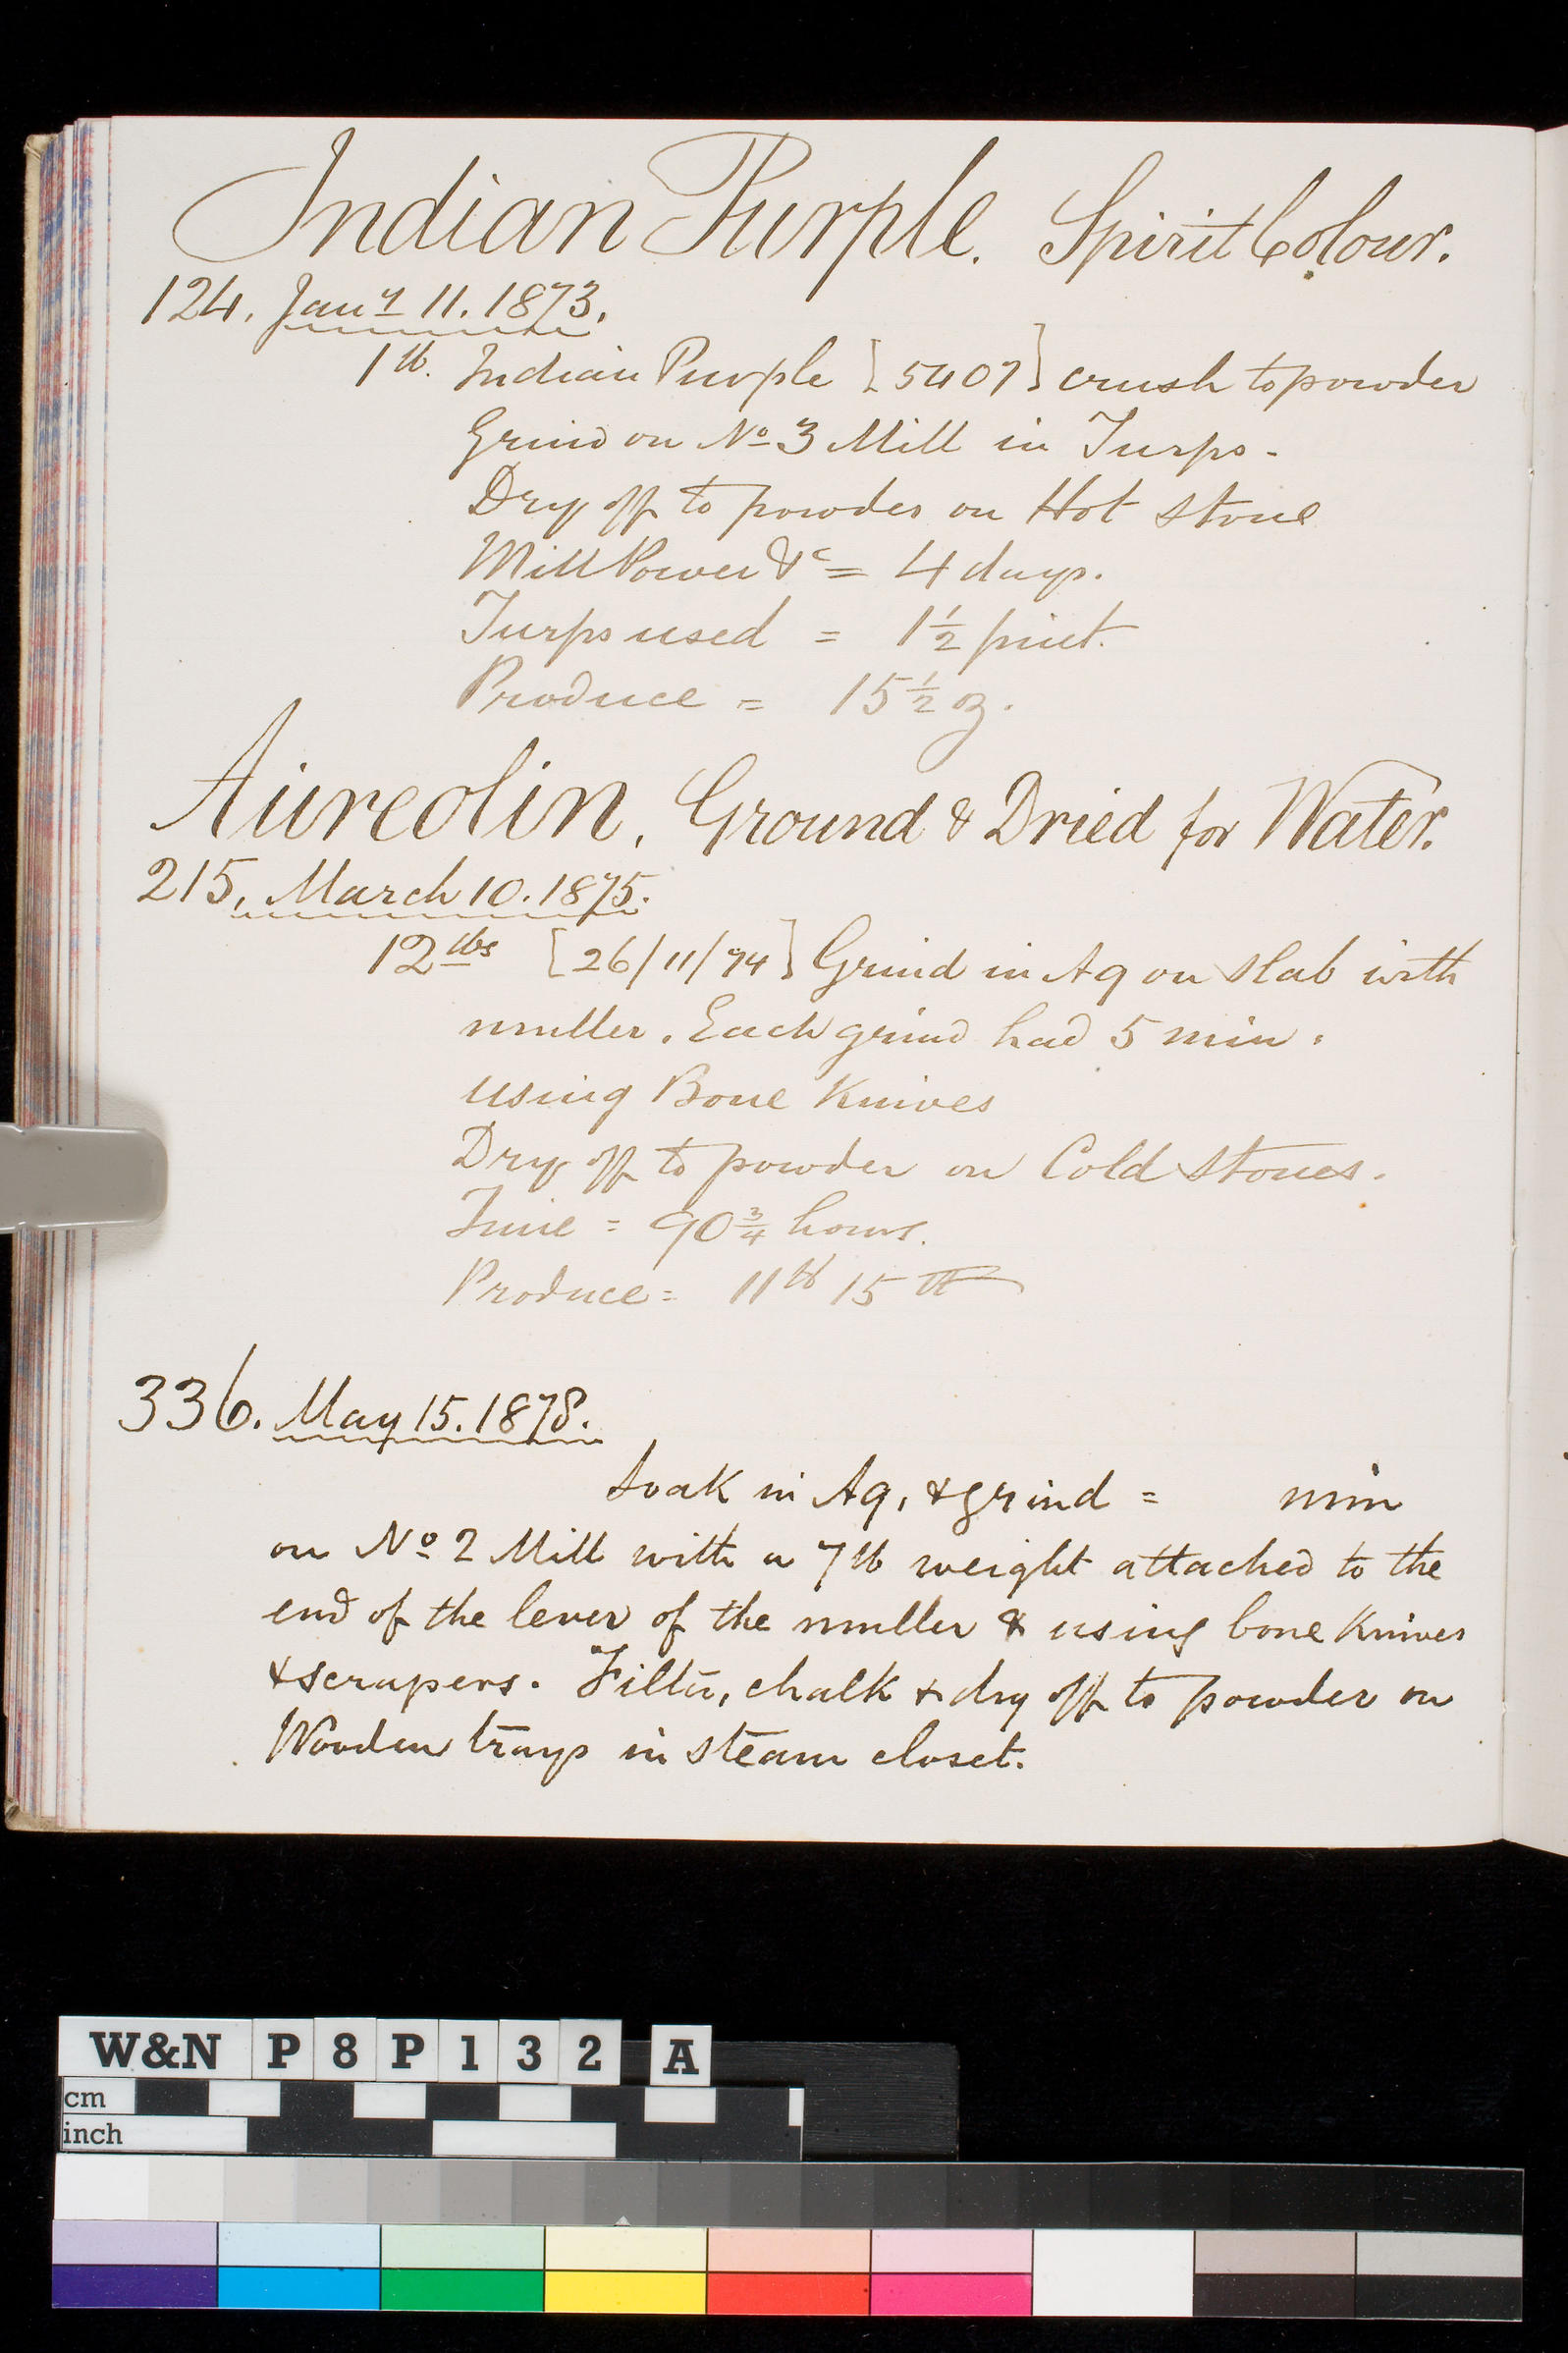 Indian Purple. Spirit Colour.
124. Jany 11. 1873.
1 lb. Indian Purple [5407] crush to powder
Grind on No 3 Mill in Turps.
Dry off to powder on Hot stone
Mill Power &c = 4 days.
Turps used = 1 1/2 pint.
Produce = 15 1/2 oz.
Aureolin, Ground & Dried for Water.
215. March 10. 1875.
12 lbs [26/11/74] Grind in Aq on slab with
muller. Each grind had 5 min.
using Bone Knives
Dry off to powder on Cold stones.
Time = 90 3/4 hours.
Produce = 11 lb 15
336. May 15. 1878.
Soak in Aq, & grind = min
on No 2 Mill with a 7 lb weight attached to the
end of the lever of the muller & using bone Knives
& scrapers. Filter, chalk & dry off to powder on
Wooden trays in steam closet.
W&N P8P132 A
cm
inch